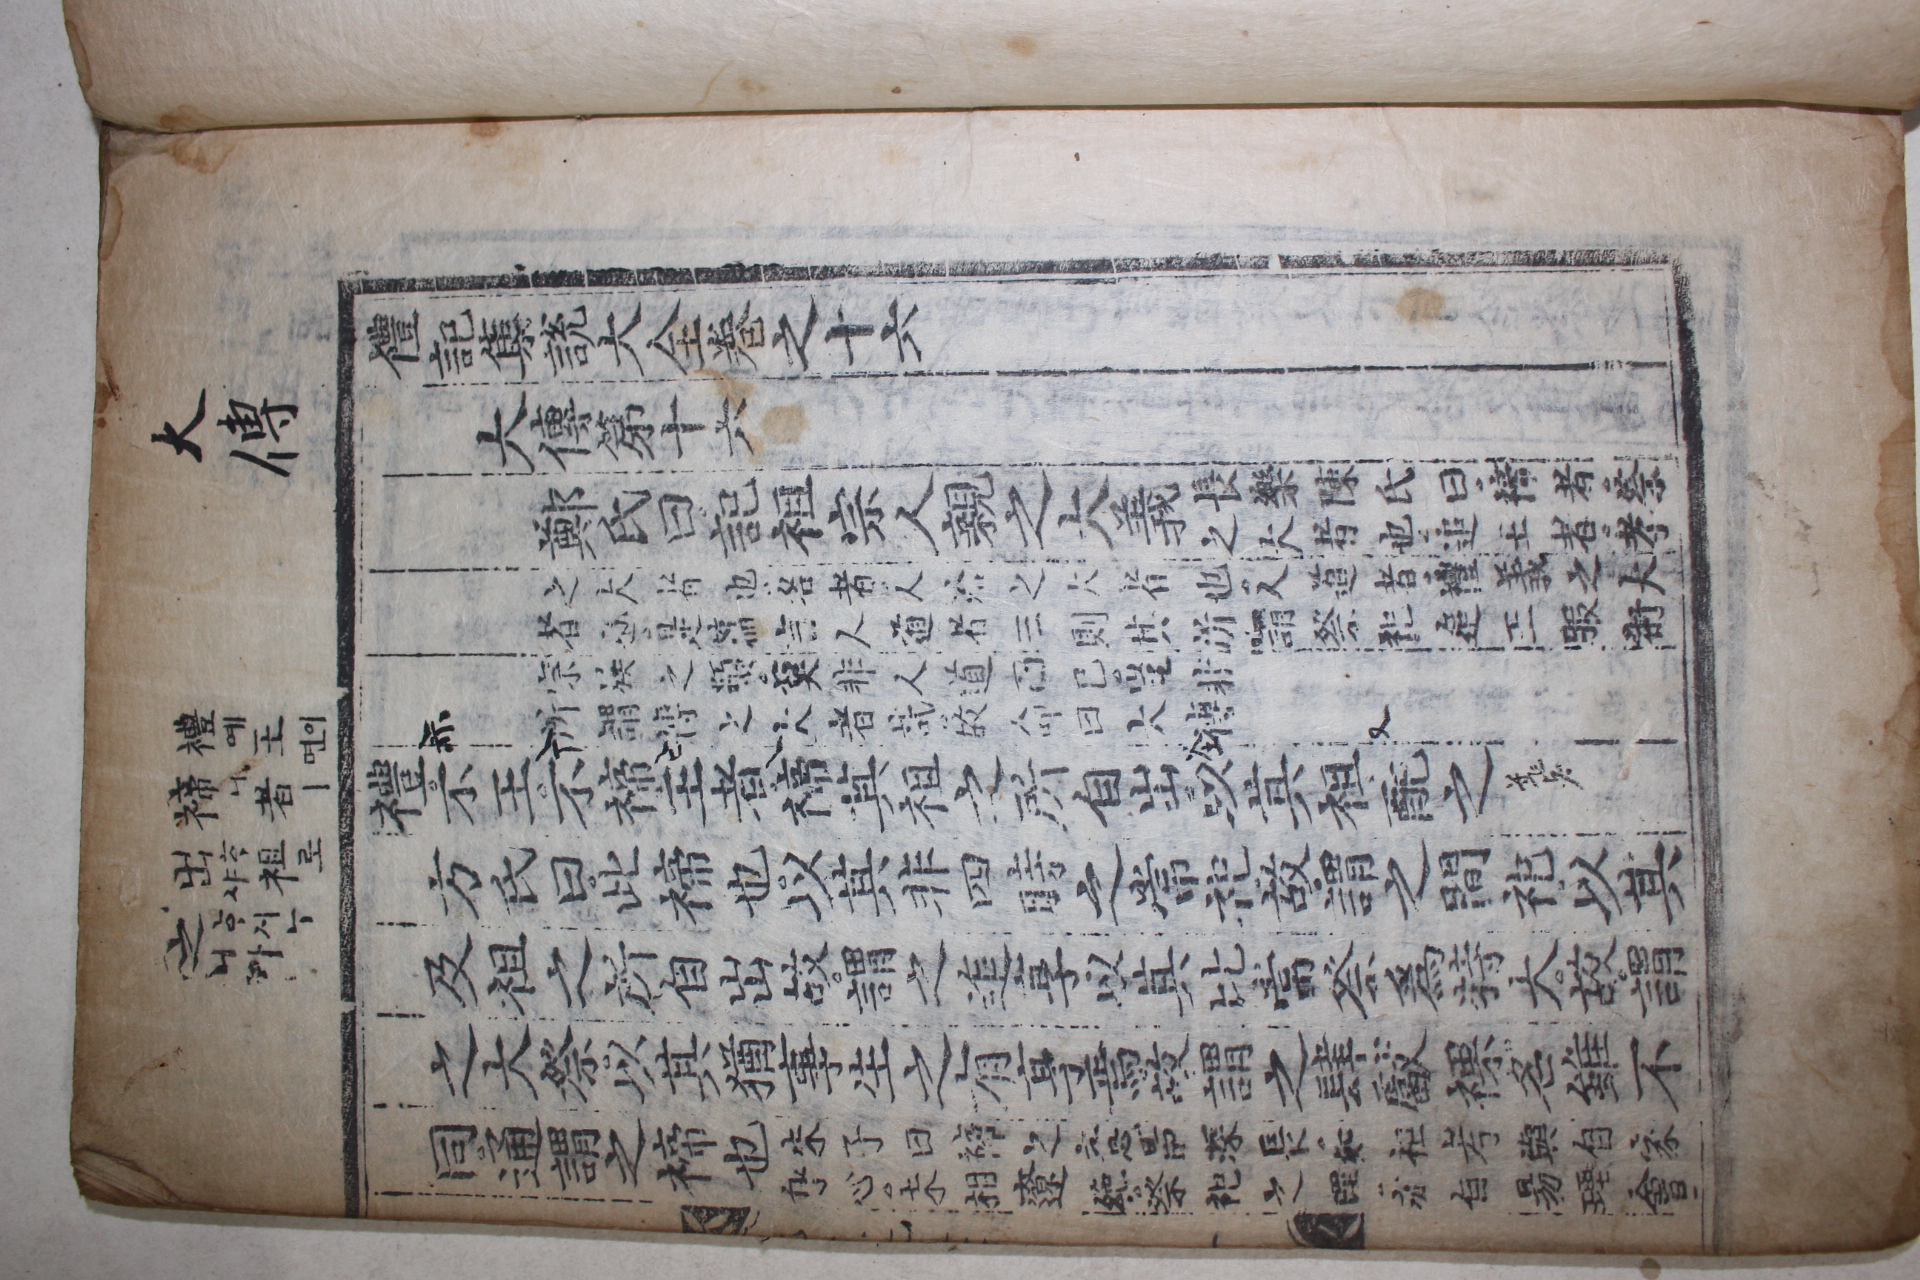 大傳
禮예王이면
禘니者ㅣ
出ᄒᆞ샤祖로
之
禮記集說大全卷之十六
大傳第十六
鄭氏曰記祖宗人親之大義長樂陳氏曰禘者祭
之大者也追王者孝
之大者也名者人治之大者也人道者禮義之大
者也是篇言人道者三則其所謂祭祀追王服術
宗族之類莫非人道而已豈非
所謂傳之大者哉故命曰大傳
禮不王不禘王者禘其祖之所自出以其祖配之
方氏曰此禘也以其非四時之常祀故謂之間祀以其
及祖之所自出故謂之追享以其比常祭爲特大故謂
之大祭以其猶事生之有享焉故謂之肆獻祼名雖不
同通謂之禘也朱子曰禘之意最深長如祖考與自家
身心未相遼絶祭祀之理亦自易理會